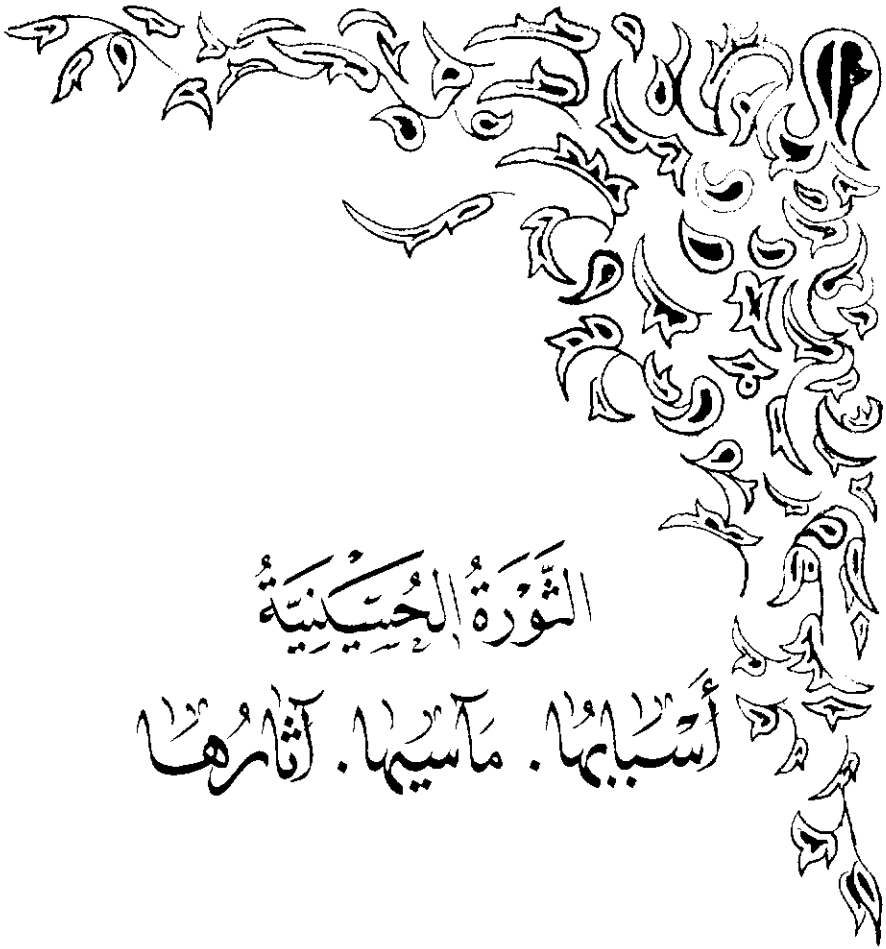 الثَّوْرَةُ الحُسَيْنِيَّةُ
أَسْبَابُهَا . مَآسِيهَا . آثَارُهَا